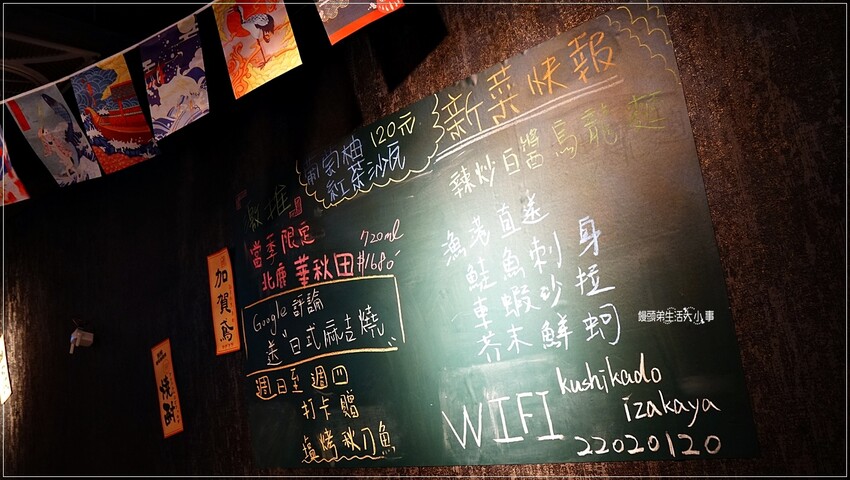 新菜快報
辣炒白醬烏龍麵
漁港直送
鮭魚刺身
車蝦沙拉
芥末鮮蚵
WIFI
kushikado
izakaya
22020120
120元
紅茶沙瓦
當季限定
720ml
北鹿 華秋田 $1680
Google 評論
送"日式麻吉燒"
週日至週四
打卡贈
鹽烤秋刀魚
加賀鳶
焼酎
饅頭弟生活大小事